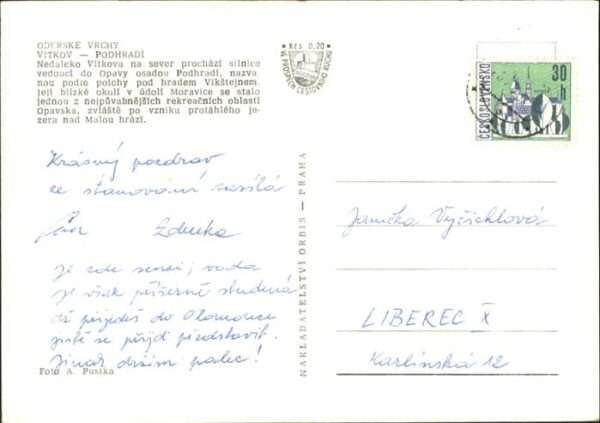 ODERSKÉ VRCHY
VÍTKOV — PODHRADÍ
Nedaleko Vítkova na sever prochází silnice
vedoucí do Opavy osadou Podhradí, nazva-
nou podle polohy pod hradem Vikštejnem.
Její blízké okolí v údolí Moravice se stalo
jednou z nejpůvabnějších rekreačních oblastí
Opavska, zvláště po vzniku protáhlého je-
zera nad Malou hrází.
KčS 0,20
VE PROSPĚCH CESTOVNÍHO RUCHU
30
h
ČESKOSLOVENSKO
Krásný pozdrav
ze stanování zasílá
Zdenka
Je zde senzi, voda
je však příšerně studená
až přijedeš do Olomouce
jistě se přijď představit.
Jinak držím palec!
Foto A. Pustka
NAKLADATELSTVÍ ORBIS — PRAHA
Janička Vyčichlová
LIBEREC X
Karlínská 12